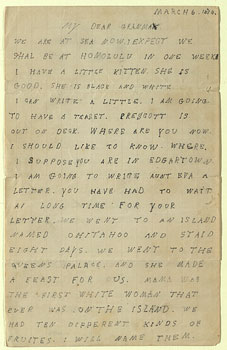 MARCH 6.
MY DEAR GRANMA
WE ARE AT SEA NOW I EXPECT WE
SHAL BE AT HONOLULU IN ONE WEEK
I HAVE A LITTLE KITTEN. SHE IS
GOOD. SHE IS BLACK AND WHITE
I CAN WRITE A LITTLE. I AM GOING
TO HAVE A TEASET. PRESCOTT IS
OUT ON DECK. WHERE ARE YOU NOW.
I SHOULD LIKE TO KNOW. WHERE.
I SUPPOSE YOU ARE IN EDGARTOWN.
I AM GOING TO WRITE AUNT A
LETTER. YOU HAVE HAD TO WAIT
A LONG TIME FOR YOUR
LETTER. WE WENT TO AN ISLAND
NAMED OHITAHOO AND STAID
EIGHT DAYS. WE WENT TO THE
QUEENS PALACE. AND SHE MADE
A FEAST FOR US. MAMA WAS
THE FIRST WHITE WOMAN THAT
EVER WAS ON THE ISLAND. WE
HAD TEN DIFFERENT KINDS OF
FRUITES. I WILL NAME THEM.